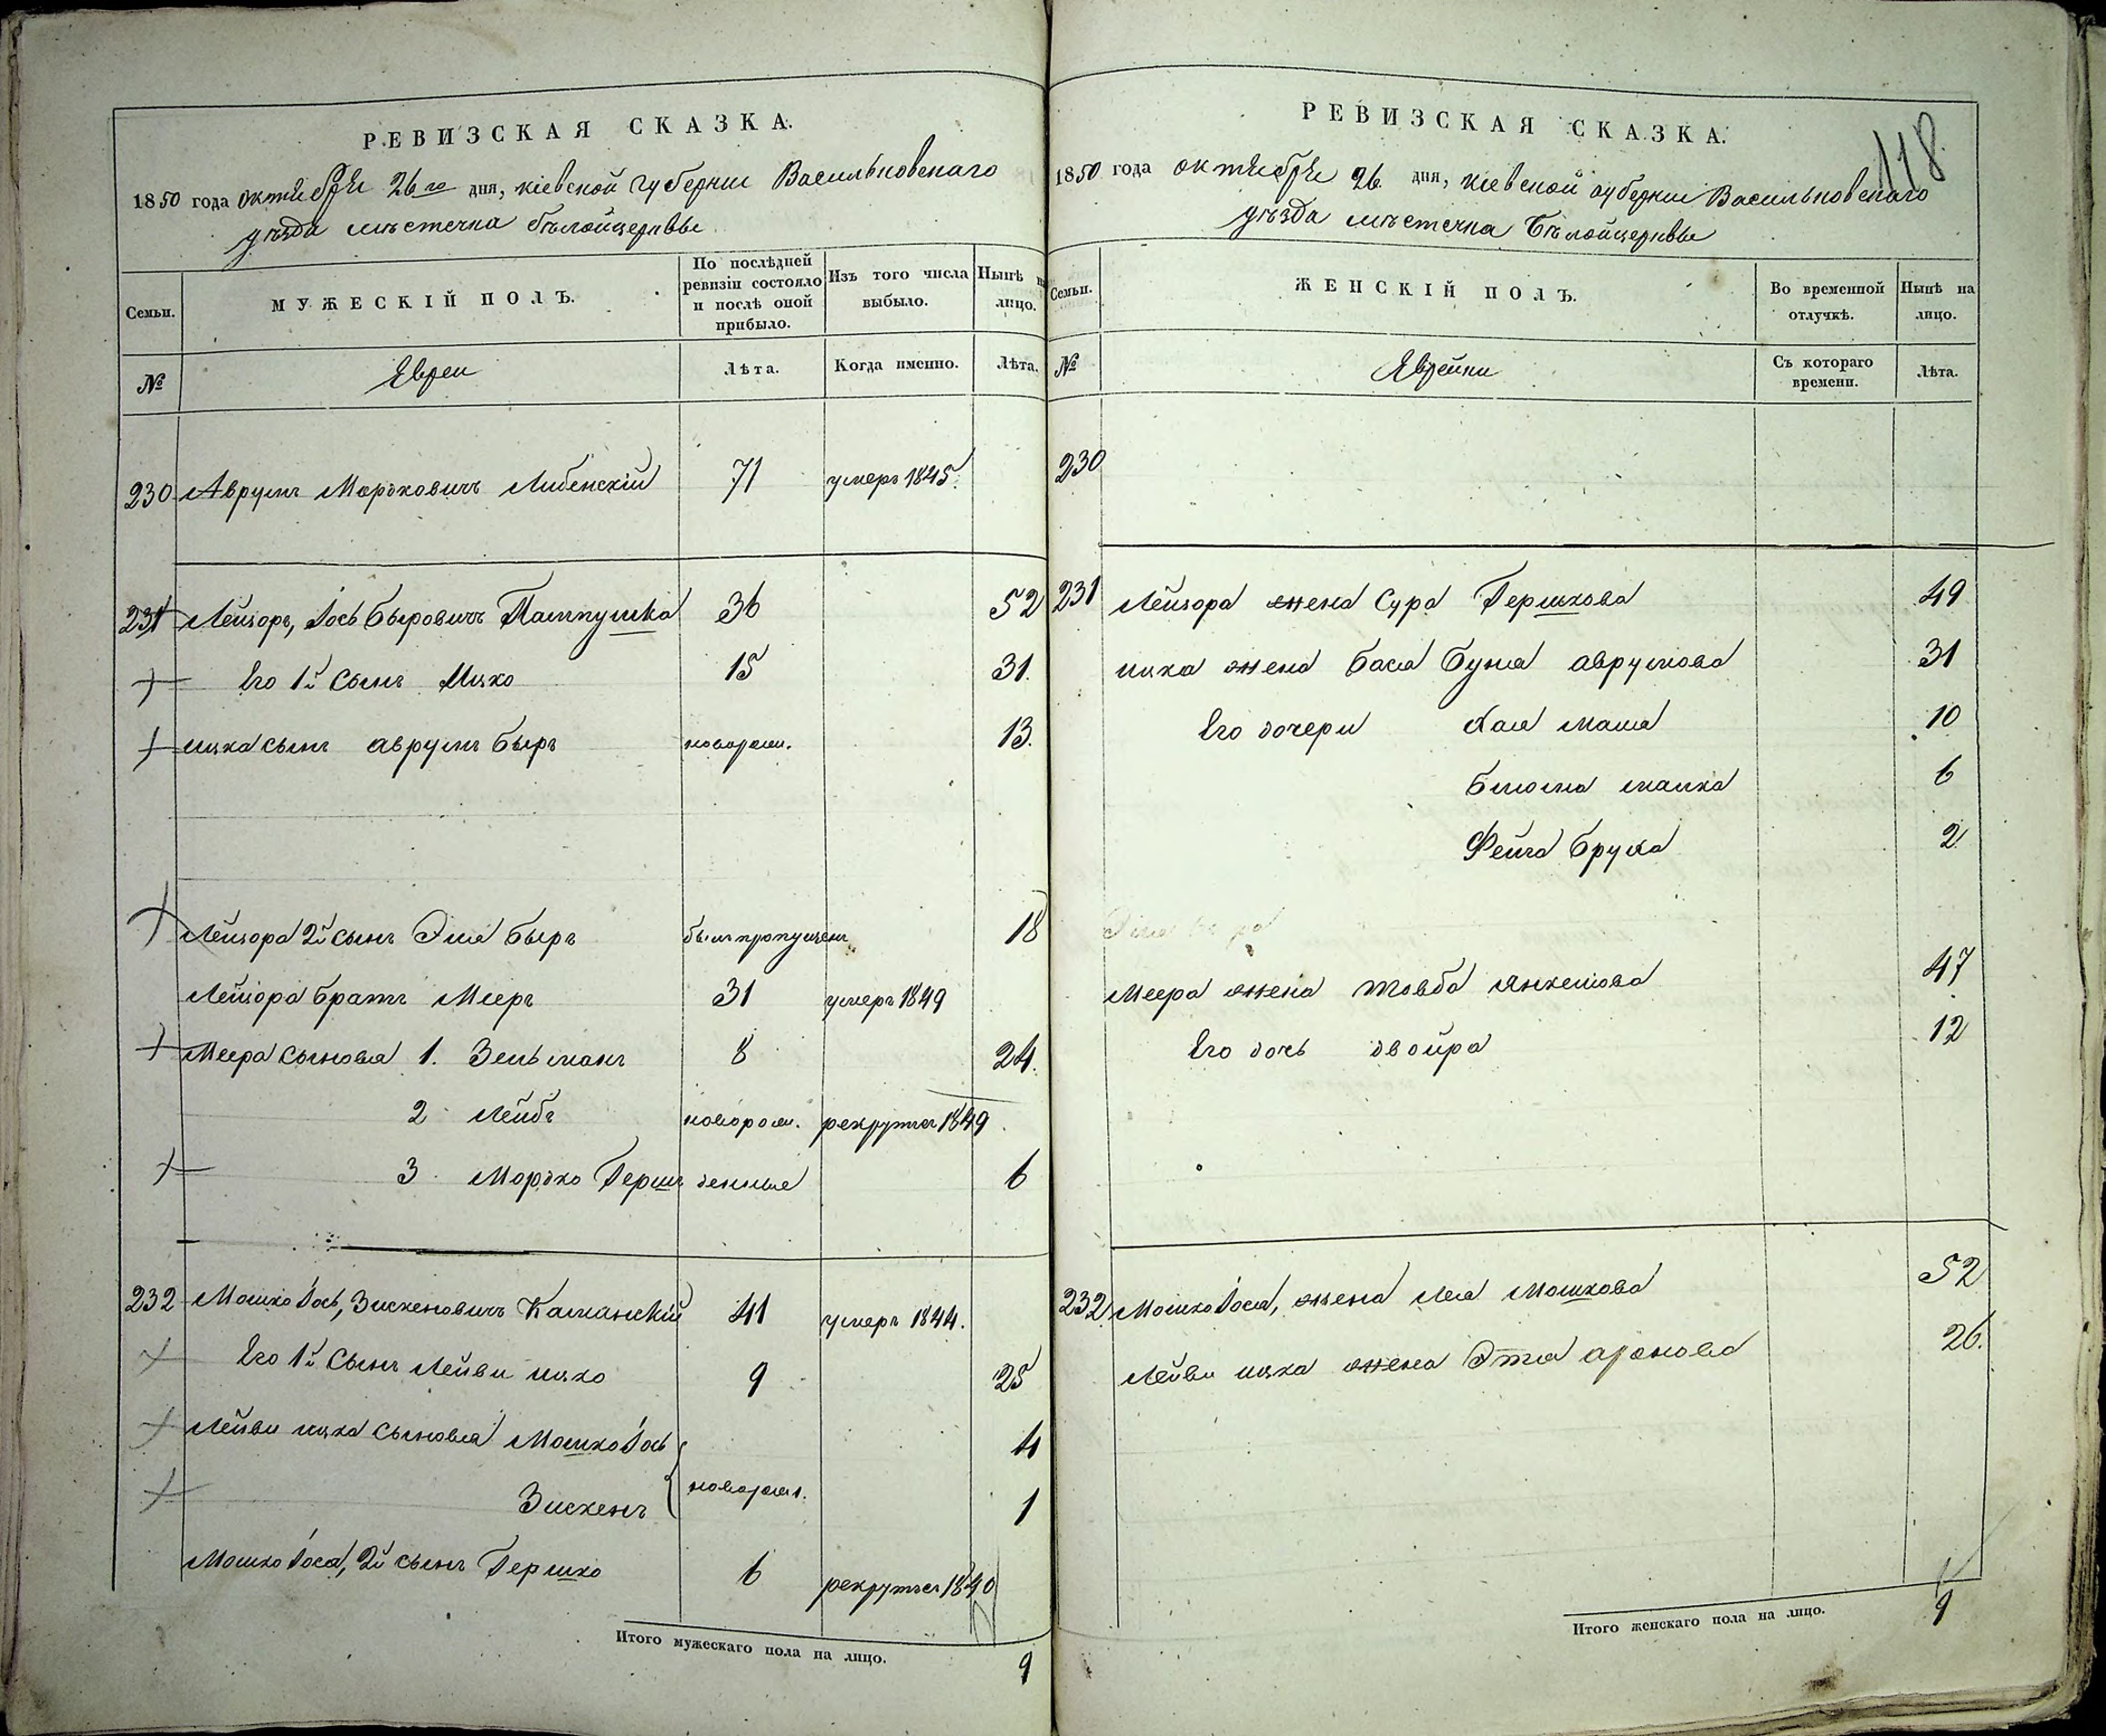 РЕВИЗСКАЯ СКАЗКА.
1850 года октября 26го дня, кіевской губерніи Васильковскаго
уѣзда мѣстечка бѣлойцерквы
Семьи.
МУЖЕСКІЙ ПОЛЪ.
По послѣдней ревизіи состояло и послѣ оной прибыло.
Изъ того числа выбыло.
Нынѣ на лицо.
№
Евреи
Лѣта.
Когда именно.
Лѣта.
230 Аврумъ Морьковичъ Либенскій 71 умеръ 1845.
231 Лейзоръ, Іось Быровичъ Патпушка 36 52
Его 1й сынъ Ицко 15 31.
ицка сынъ аврумъ быръ новорож. 13.
Лейзора 2й сынъ Эля быръ былъ пропущенъ 18
Лейзора братъ Мееръ 31 умеръ 1849
Меера сыновья 1. Зельманъ 8 24.
2 Лейбъ новорож. рекрутъ 1849
3 Морько Гершъ денные 6
232 Мошко Іось, Зискеновичъ Каманскій 41 умеръ 1844.
Его 1й сынъ Лейви ицко 9 25
Лейви ицка сыновья Мошко Іось 4
Зискенъ новорож. 1
Мошко Іося, 2й сынъ Гершко 6 рекрутъ 1840
Итого мужескаго пола на лицо. 9
118
РЕВИЗСКАЯ СКАЗКА.
1850 года октября 26 дня, кіевской губерніи Васильковскаго
уѣзда мѣстечка Бѣлойцерквы
Семьи.
ЖЕНСКІЙ ПОЛЪ.
Во временной отлучкѣ.
Нынѣ на лицо.
№
Еврейки
Съ котораго времени.
Лѣта.
230
231 Лейзора жена Сура Гершкова 49
ицка жена Бася Буня аврумова 31
Его дочери Хая маля 10
Блюма малка 6
Фейга Бруха 2
Меера жена товба Янкелова 47
Его дочь двойра 12
232 Мошко Іося, жена Лея Мошкова 52
Лейви ицка жена Этя аронова 26.
Итого женскаго пола на лицо. 9